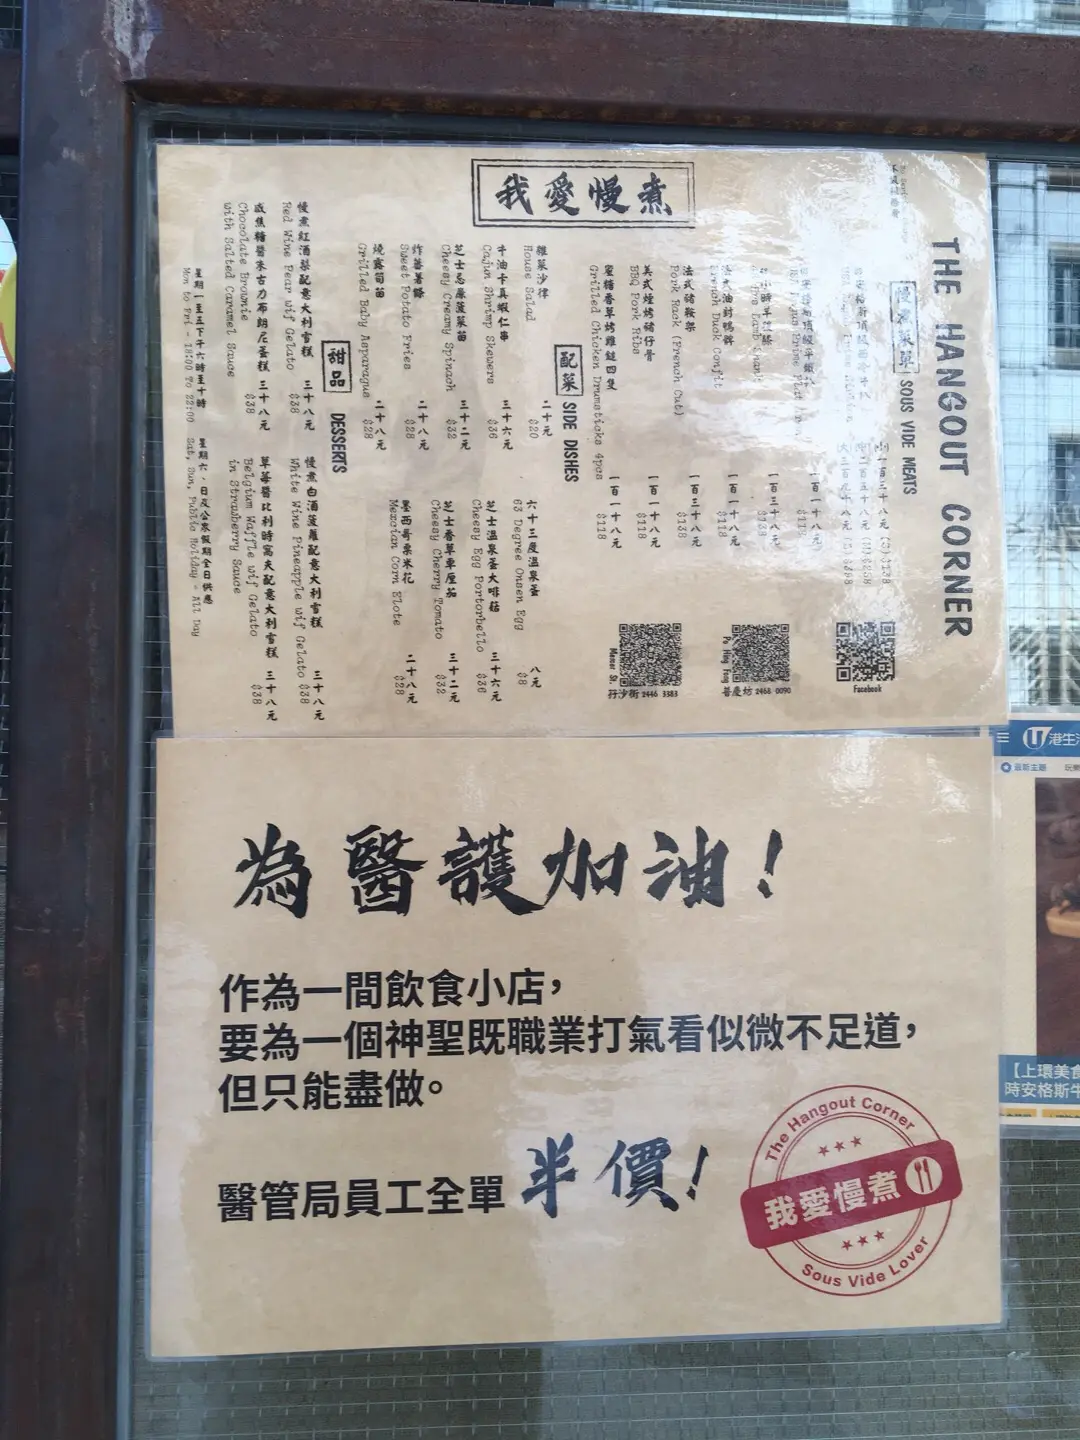 我愛慢煮
THE HANGOUT CORNER
SOUS VIDE MEATS
法式油封鴨髀
French Duck Confit
一百一十八元
$118
法式豬鞍架
Pork Rack (French Cut)
一百三十八元
$138
美式煙烤豬仔骨
BBQ Pork Ribs
一百一十八元
$118
蜜糖香草烤雞鎚四隻
Grilled Chicken Drumsticks 4pcs
一百一十八元
$118
配菜 SIDE DISHES
雜菜沙律
House Salad
二十元
$20
牛油卡真蝦仁串
Cajun Shrimp Skewers
三十六元
$36
芝士忌廉菠菜苗
Cheesy Creamy Spinach
三十二元
$32
炸蕃薯條
Sweet Potato Fries
二十八元
$28
燒露筍苗
Grilled Baby Asparagus
二十八元
$28
六十三度溫泉蛋
63 Degree Onsen Egg
八元
$8
芝士溫泉蛋大啡菇
Cheesy Egg Portorbello
三十六元
$36
芝士香草車厘茄
Cheesy Cherry Tomato
三十二元
$32
墨西哥粟米花
Mexcian Corn Elote
二十八元
$28
甜品 DESSERTS
慢煮紅酒梨配意大利雪糕
Red Wine Pear wif Gelato
三十八元
$38
咸焦糖醬朱古力布朗尼蛋糕
Chocolate Brownie
with Salted Caramel Sauce
三十八元
$38
慢煮白酒菠蘿配意大利雪糕
White Wine Pineapple wif Gelato
三十八元
$38
草莓醬比利時窩夫配意大利雪糕
Belgium Waffle wif Gelato
in Strawberry Sauce
三十八元
$38
星期一至五下午六時至十時
Mon to Fri - 18:00 To 22:00
星期六、日及公眾假期全日供應
Sat, Sun, Public Holiday - All Day
Facebook
Po Hing Fong
普慶坊 2468 0090
Mercer St.
孖沙街 2446 3383
為醫護加油！
作為一間飲食小店，
要為一個神聖既職業打氣看似微不足道，
但只能盡做。
醫管局員工全單 半價！
The Hangout Corner
我愛慢煮
Sous Vide Lover
港生活
最新主題
【上環美食
時安格斯牛